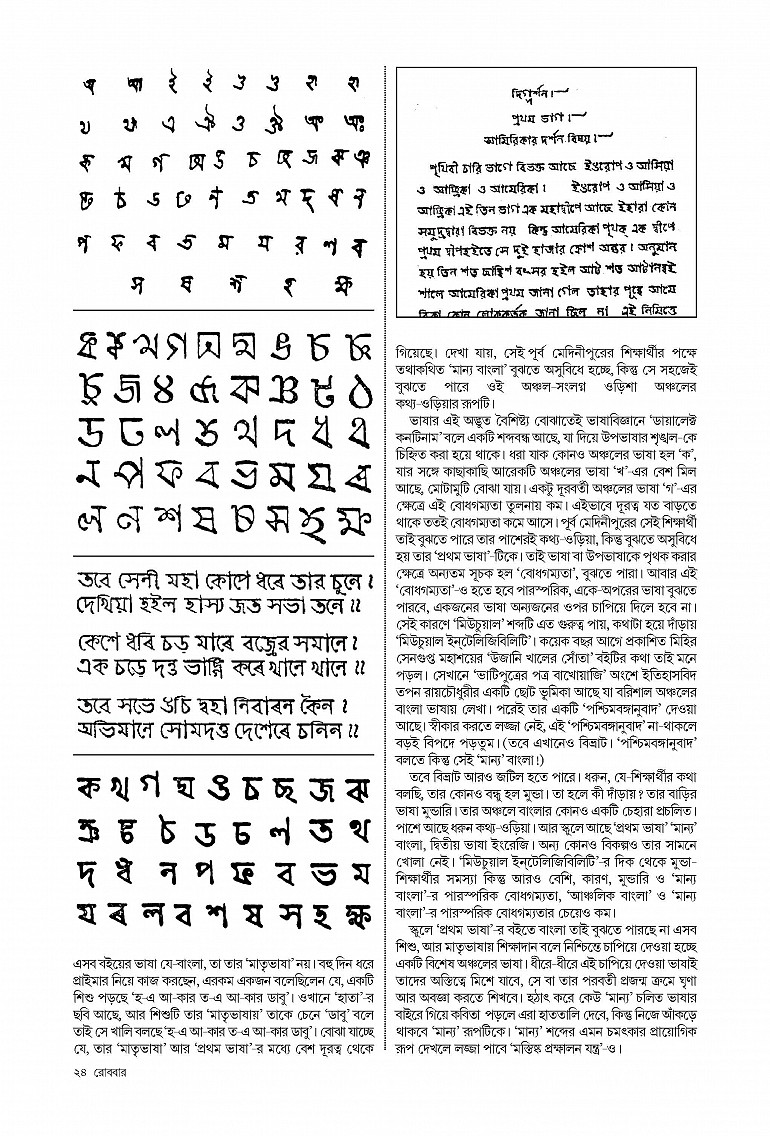 অ আ ই ঈ উ ঊ ঋ ৠ
এ ঐ ও ঔ অং অঃ
চ ছ জ
ড ঢ ত
প ফ ব ভ ম য র ল ব
স ষ শ হ ক্ষ
তবে সেনী মহা কোপে ধৰে তার চুলে।
দেখিয়া হইল হাস্য জত সভা তলে॥
কেশে ধৰি চড় মাৰে বজ্রের সমানে।
এক চড়ে দন্ত ভাঙ্গি কৰে খানে খানে॥
তবে সভে উঠি দ্বহা নিবারন কৈল।
অভিমানে সোমদত্ত দেশেৰে চলিল॥
ক খ গ ঘ ঙ চ ছ জ ঝ
ঞ ট ঠ ড ঢ ণ ত থ
দ ধ ন প ফ ব ভ ম
য ৰ ল ব শ ষ স হ ক্ষ
এসব বইয়ের ভাষা যে-বাংলা, তা তার ‘মাতৃভাষা’ নয়। বহু দিন ধরে
প্রাইমার নিয়ে কাজ করছেন, এরকম একজন বলেছিলেন যে, একটি
শিশু পড়ছে ‘হ-এ আ-কার ত-এ আ-কার ডাবু’। ওখানে ‘হাতা’-র
ছবি আছে, আর শিশুটি তার ‘মাতৃভাষায়’ তাকে চেনে ‘ডাবু’ বলে
তাই সে খালি বলছে ‘হ-এ আ-কার ত-এ আ-কার ডাবু’। বোঝা যাচ্ছে
যে, তার ‘মাতৃভাষা’ আর ‘প্রথম ভাষা’-র মধ্যে বেশ দূরত্ব থেকে
দিগ্দর্শন।
প্রথম ভাগ।
আমিরিকার দর্শন বিষয়।
পৃথিবী চারি ভাগে বিভক্ত আছে ইউরোপ ও আসিয়া
ও আফ্রিকা ও আমেরিকা। ইউরোপ ও আসিয়া ও
আফ্রিকা এই তিন ভাগ এক মহাদ্বীপে আছে ইহারা কোন
সমুদ্রদ্বারা বিভক্ত নয় কিন্তু আমেরিকা পৃথক্ এক দ্বীপে
প্রথম দ্বীপহইতে সে দুই হাজার ক্রোশ অন্তর। অনুমান
হয় তিন শত ছাব্বিশ বৎসর হইল আট শত আটানব্বই
শালে আমেরিকা প্রথম জানা গেল তাহার পূর্ব্বে আমে
রিকা কোন লোককর্তৃক জানা ছিল না এই নিমিত্তে
গিয়েছে। দেখা যায়, সেই পূর্ব মেদিনীপুরের শিক্ষার্থীর পক্ষে
তথাকথিত ‘মান্য বাংলা’ বুঝতে অসুবিধে হচ্ছে, কিন্তু সে সহজেই
বুঝতে পারে ওই অঞ্চল-সংলগ্ন ওড়িশা অঞ্চলের
কথ্য-ওড়িয়ার রূপটি।
ভাষার এই অদ্ভুত বৈশিষ্ট্য বোঝাতেই ভাষাবিজ্ঞানে ‘ডায়ালেক্ট
কনটিনাম’ বলে একটি শব্দবন্ধ আছে, যা দিয়ে উপভাষার শৃঙ্খল-কে
চিহ্নিত করা হয়ে থাকে। ধরা যাক কোনও অঞ্চলের ভাষা হল ‘ক’,
যার সঙ্গে কাছাকাছি আরেকটি অঞ্চলের ভাষা ‘খ’-এর বেশ মিল
আছে, মোটামুটি বোঝা যায়। একটু দূরবর্তী অঞ্চলের ভাষা ‘গ’-এর
ক্ষেত্রে এই বোধগম্যতা তুলনায় কম। এইভাবে দূরত্ব যত বাড়তে
থাকে ততই বোধগম্যতা কমে আসে। পূর্ব মেদিনীপুরের সেই শিক্ষার্থী
তাই বুঝতে পারে তার পাশেরই কথ্য-ওড়িয়া, কিন্তু বুঝতে অসুবিধে
হয় তার ‘প্রথম ভাষা’-টিকে। তাই ভাষা বা উপভাষাকে পৃথক করার
ক্ষেত্রে অন্যতম সূচক হল ‘বোধগম্যতা’, বুঝতে পারা। আবার এই
‘বোধগম্যতা’-ও হতে হবে পারস্পরিক, একে-অপরের ভাষা বুঝতে
পারবে, একজনের ভাষা অন্যজনের ওপর চাপিয়ে দিলে হবে না।
সেই কারণে ‘মিউচুয়াল’ শব্দটি এত গুরুত্ব পায়, কথাটা হয়ে দাঁড়ায়
‘মিউচুয়াল ইন্‌টেলিজিবিলিটি’। কয়েক বছর আগে প্রকাশিত মিহির
সেনগুপ্ত মহাশয়ের ‘উজানি খালের সোঁতা’ বইটির কথা তাই মনে
পড়ল। সেখানে ‘ভাটিপুত্রের পত্র বাখোয়াজি’ অংশে ইতিহাসবিদ
তপন রায়চৌধুরীর একটি ছোট ভূমিকা আছে যা বরিশাল অঞ্চলের
বাংলা ভাষায় লেখা। পরেই তার একটি ‘পশ্চিমবঙ্গানুবাদ’ দেওয়া
আছে। স্বীকার করতে লজ্জা নেই, এই ‘পশ্চিমবঙ্গানুবাদ’ না-থাকলে
বড়ই বিপদে পড়তুম। (তবে এখানেও বিভ্রাট। ‘পশ্চিমবঙ্গানুবাদ’
বলতে কিন্তু সেই ‘মান্য’ বাংলা!)
তবে বিভ্রাট আরও জটিল হতে পারে। ধরুন, যে-শিক্ষার্থীর কথা
বলছি, তার কোনও বন্ধু হল মুন্ডা। তা হলে কী দাঁড়ায়? তার বাড়ির
ভাষা মুন্ডারি। তার অঞ্চলে বাংলার কোনও একটি চেহারা প্রচলিত।
পাশে আছে ধরুন কথ্য-ওড়িয়া। আর স্কুলে আছে ‘প্রথম ভাষা’ ‘মান্য’
বাংলা, দ্বিতীয় ভাষা ইংরেজি। অন্য কোনও বিকল্পও তার সামনে
খোলা নেই। ‘মিউচুয়াল ইন্‌টেলিজিবিলিটি’-র দিক থেকে মুন্ডা-
শিক্ষার্থীর সমস্যা কিন্তু আরও বেশি, কারণ, মুন্ডারি ও ‘মান্য
বাংলা’-র পারস্পরিক বোধগম্যতা, ‘আঞ্চলিক বাংলা’ ও ‘মান্য
বাংলা’-র পারস্পরিক বোধগম্যতার চেয়েও কম।
স্কুলে ‘প্রথম ভাষা’-র বইতে বাংলা তাই বুঝতে পারছে না এসব
শিশু, আর মাতৃভাষায় শিক্ষাদান বলে নিশ্চিন্তে চাপিয়ে দেওয়া হচ্ছে
একটি বিশেষ অঞ্চলের ভাষা। ধীরে-ধীরে এই চাপিয়ে দেওয়া ভাষাই
তাদের অস্তিত্বে মিশে যাবে, সে বা তার পরবর্তী প্রজন্ম ক্রমে ঘৃণা
আর অবজ্ঞা করতে শিখবে। হঠাৎ করে কেউ ‘মান্য’ চলিত ভাষার
বাইরে গিয়ে কবিতা পড়লে এরা হাততালি দেবে, কিন্তু নিজে আঁকড়ে
থাকবে ‘মান্য’ রূপটিকে। ‘মান্য’ শব্দের এমন চমৎকার প্রায়োগিক
রূপ দেখলে লজ্জা পাবে ‘মস্তিষ্ক প্রক্ষালন যন্ত্র’-ও।
২৪ রোববার